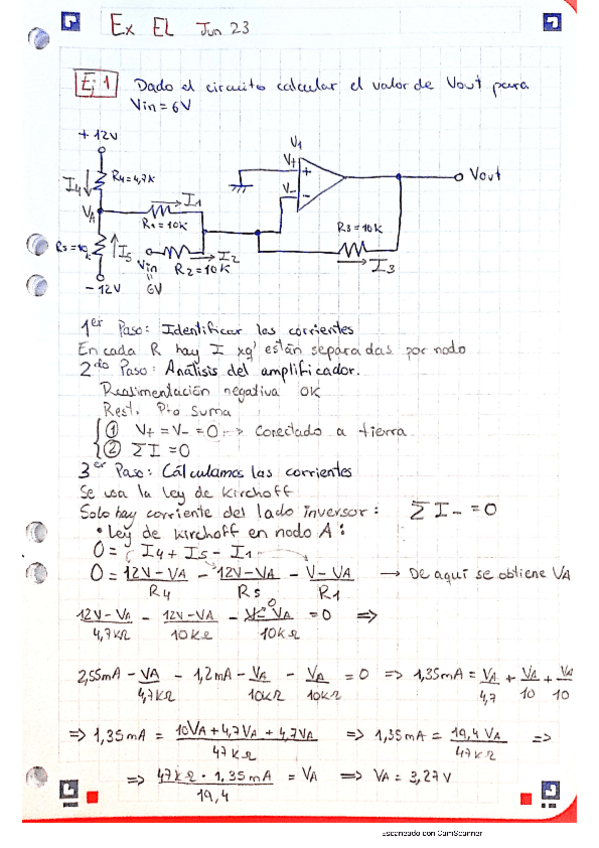 Ex EL Jun 23
Ej 1 Dado el circuito calcular el valor de Vout para
Vin = 6V
+ 12V
I4↓ R4=4,7K
VA
I1
R1=10K
R5=10K
↑I5
Vin
"
6V
R2=10K
I2
- 12V
V1
V+
V-
+
-
Vout
R3=10K
I3
1er Paso: Identificar las corrientes
En cada R hay I xq' están separadas por nodo
2ndo Paso: Análisis del amplificador.
Realimentación negativa OK
Rest. Pto Suma
① V+ = V- = 0 → Conectado a tierra
② ΣI = 0
3er Paso: Cálculamos las corrientes
Se usa la ley de Kirchoff
Solo hay corriente del lado inversor: ΣI- = 0
• Ley de kirchoff en nodo A:
0 = I4 + I5 - I1
0 = 12V-VA/R4 - 12V-VA/R5 - V-VA/R1 → De aquí se obtiene VA
12V-VA/4,7KΩ - 12V-VA/10KΩ - V-0 VA/10KΩ = 0 ⇒
2,55mA - VA/4,7KΩ - 1,2mA - VA/10KΩ - VA/10KΩ = 0 ⇒ 1,35mA = VA/4,7 + VA/10 + VA/10
⇒ 1,35mA = 10VA+4,7VA+4,7VA/47KΩ ⇒ 1,35mA = 19,4VA/47KΩ ⇒
⇒ 47KΩ · 1,35mA/19,4 = VA ⇒ VA = 3,27V
Escaneado con CamScanner